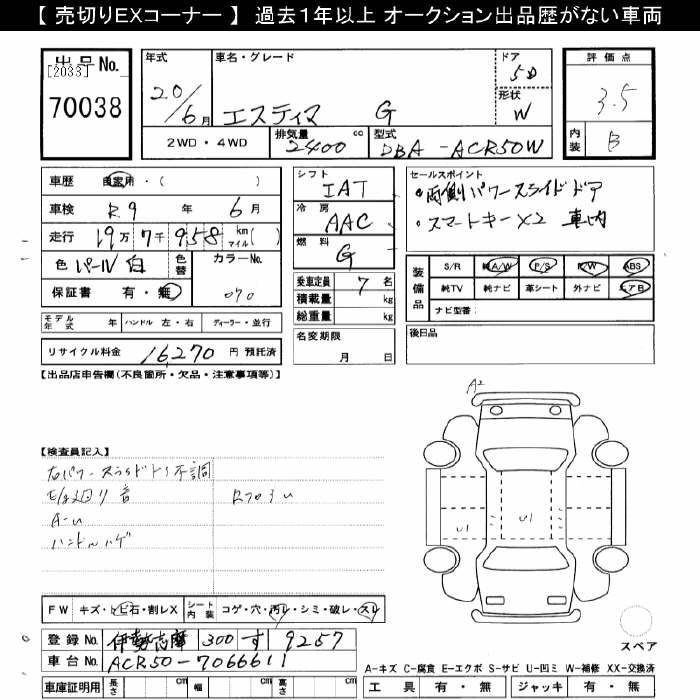 【 売切りEXコーナー 】 過去1年以上 オークション出品歴がない車両
出品No. [2033]
70038
年式 20/6月
車名・グレード エスティマ G
ドア 5D
形状 W
評価点 3.5
内装 B
2WD・4WD
排気量 2400 cc
型式 DBA-ACR50W
車歴 自家用・( )
車検 R.9 年 6月
走行 19万7千958 km マイル( )
色 パール白 色替 カラーNo. 070
保証書 有・無
モデル年式 年 ハンドル 左・右 ディーラー・並行
リサイクル料金 16,270 円 預託済
シフト IAT
冷房 AAC
燃料 G
乗車定員 7 名
積載量 kg
総重量 kg
名変期限 月 日
セールスポイント
・両側パワースライドドア
・スマートキー×2 車内
装備品 S/R 純A/W P/S P/W ABS
純TV 純ナビ 革シート 外ナビ エアB
ナビ型番:
後日品
【出品店申告欄(不良箇所・欠品・注意事項等)】
A2
【検査員記入】
右パワースライドドア不調
音
A-U
ハンドルハゲ
U1 U1
FW キズ・トビ石・割レX シート内装 コゲ・穴・汚レ・シミ・破レ・スレ
登録No. 伊勢志摩 300 す 9257
車台No. ACR50-7066611
車庫証明用 長さ cm 幅 cm 高さ cm
スペア
A-キズ C-腐食 E-エクボ S-サビ U-凹ミ W-補修 XX-交換済
工具 有・無 ジャッキ 有・無